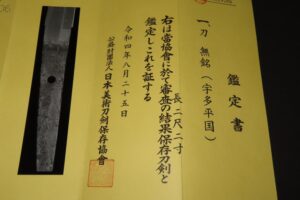 鑑定書
一、刀 無銘（宇多平国）
長、二尺二寸
右は當協會に於て審査の結果保存刀剣と
鑑定しこれを証する
令和四年八月二十五日
公益財団法人日本美術刀剣保存協會